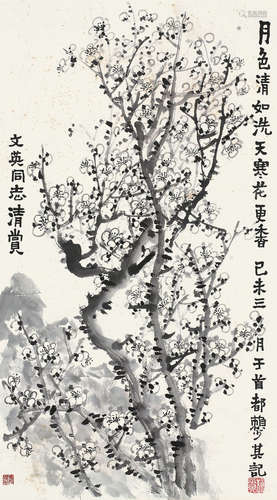 月色清如洗天寒花更香 己未三月于首都 賴少其記
文英同志清賞